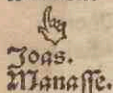 Joas.
Manasse.